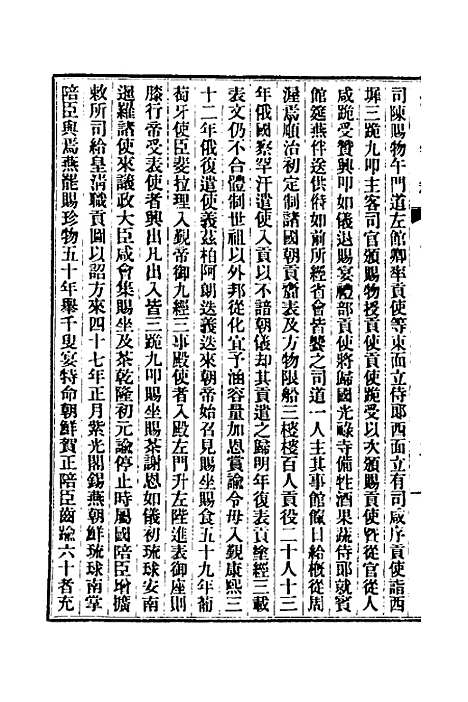 司陳賜物午門道左館卿率貢使等東面立侍郎西面立有司咸序貢使詣西
墀三跪九叩主客司官頒賜物授貢使貢使跪受以次頒賜貢使暨從官從人
咸跪受贊興叩如儀退賜宴禮部貢使將歸國光祿寺備牲酒果蔬侍郎就賓
館筵燕伴送供偫如前所經省會皆饗之司道一人主其事館餼日給概從周
渥焉順治初定制諸國朝貢齎表及方物限船三樓樓百人貢役二十人十三
年俄國察罕汗遣使入貢以不諳朝儀卻其貢遣之歸明年復表貢塗經三載
表文仍不合體制世祖以外邦從化宜予涵容量加恩賞諭令毋入覲康熙三
十二年俄復遣使義茲柏阿朗迭義迭來朝帝始召見賜坐賜食五十九年葡
萄牙使臣斐拉理入覲帝御九經三事殿使者入殿左門升左陛進表御座則
膝行帝受表使者興出凡出入皆三跪九叩賜坐賜茶謝恩如儀初琉球安南
暹羅諸使來議政大臣咸會集賜坐及茶乾隆初元諭停止時屬國陪臣增擴
敕所司給皇淸職貢圖以詔方來四十七年正月紫光閣錫燕朝鮮琉球南掌
陪臣與焉燕罷賜珍物五十年舉千叟宴特命朝鮮賀正陪臣齒踰六十者充